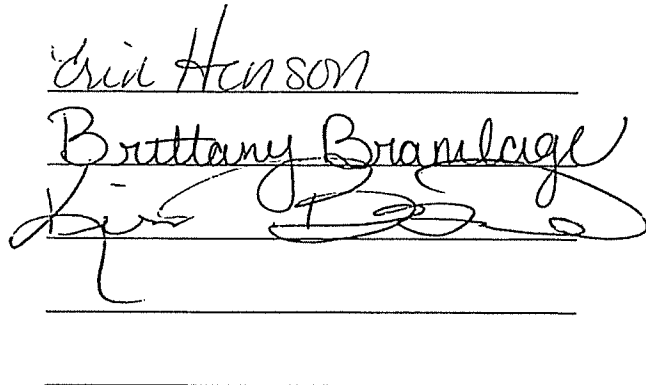 Erin Henson
Brittany Bramlage